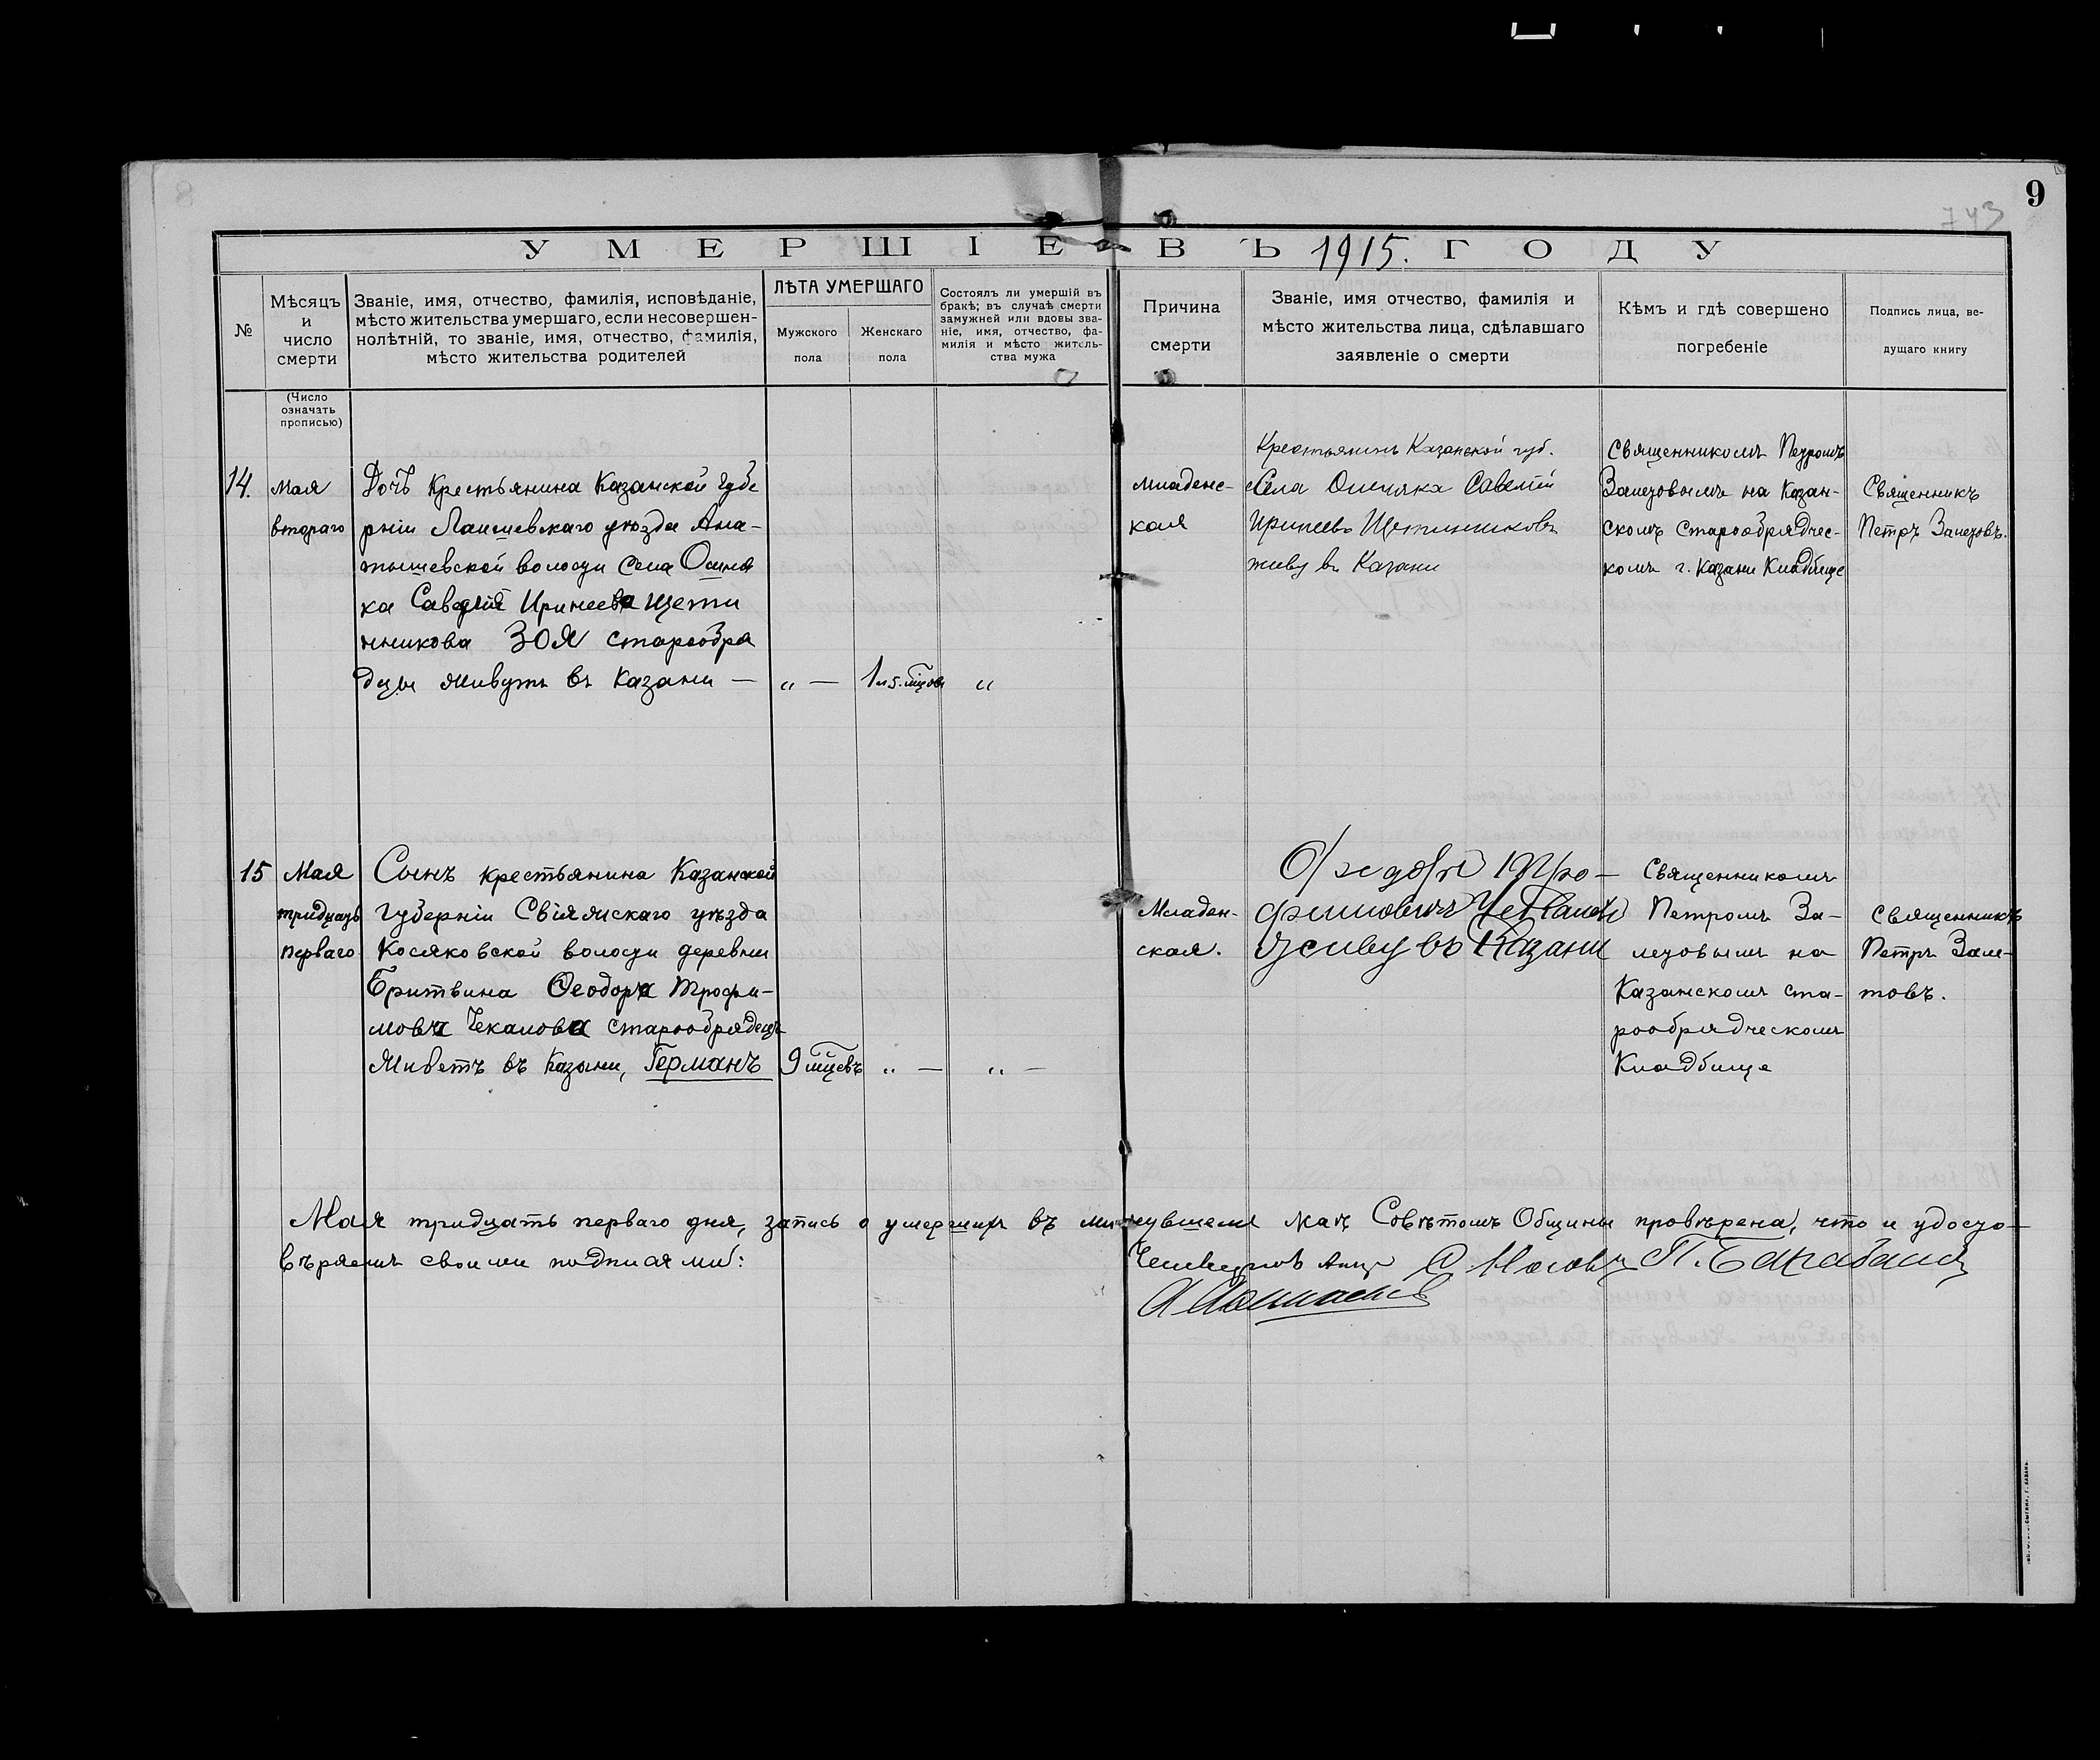 9
743
УМЕРШІЕ ВЪ 1915. ГОДУ
№
Мѣсяцъ
и
число
смерти
Званіе, имя, отчество, фамилія, исповѣданіе,
мѣсто жительства умершаго, если несовершен-
нолѣтній, то званіе, имя, отчество, фамилія,
мѣсто жительства родителей
ЛѢТА УМЕРШАГО
Мужского
пола
Женскаго
пола
Состоялъ ли умершій въ
бракѣ; въ случаѣ смерти
замужней или вдовы зва-
ніе, имя, отчество, фа-
милія и мѣсто житель-
ства мужа
Причина
смерти
Званіе, имя отчество, фамилія и
мѣсто жительства лица, сдѣлавшаго
заявленіе о смерти
Кѣмъ и гдѣ совершено
погребеніе
Подпись лица, ве-
дущаго книгу
(Число
означать
прописью)
14.
Мая
втораго
Дочь Крестьянина Казанской губе
рніи Лаишевскаго уѣзда Ана-
тышевской волости села Осиня
ка Савелія Иринеева Щети
нникова ЗОЯ старообря
дцы живутъ въ Казани —
„ —
1 и 5. мѣцовъ
„
младенс-
кая
Крестьянинъ Казанской губ.
села Осиняка Савелій
Иринеевъ Щетинниковъ
живу въ Казани
Священникомъ Петромъ
Залетовымъ на Казан-
скомъ Старообрядчес-
комъ г. Казани Кладбище
Священникъ
Петръ Залетовъ.
15
Мая
тридцать
перваго
Сынъ крестьянина Казанской
губерніи Свіяжскаго уѣзда
Косяковской волости деревни
Бритвина Ѳеодора Трофи-
мовча Чекалова старообрядецъ
Живетъ въ Казани, Германъ
9 мѣцевъ
„ —
„ —
Младен-
ская.
Ѳедоръ Тро-
фимовичъ
живу въ Казани
Священникомъ
Петромъ За-
летовымъ на
Казанскомъ ста-
рообрядческомъ
Кладбище
Священникъ
Петръ Зале-
товъ.
Мая тридцать перваго дня, запись о умершихъ въ минувшемъ маѣ Совѣтомъ Общины провѣрена, что и удосто-
вѣряемъ своими подписями: